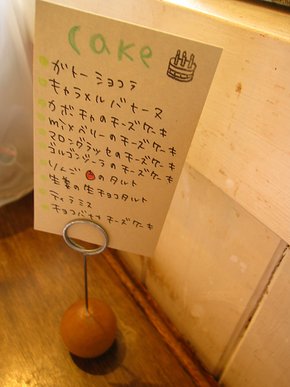 cake
ガトーショコラ
キャラメルバナーヌ
カボチャのチーズケーキ
mixベリーのチーズケーキ
マロングラッセのチーズケーキ
ゴルゴンゾーラのチーズケーキ
りんごのタルト
生姜の生チョコタルト
ティラミス
チョコバナナチーズケーキ